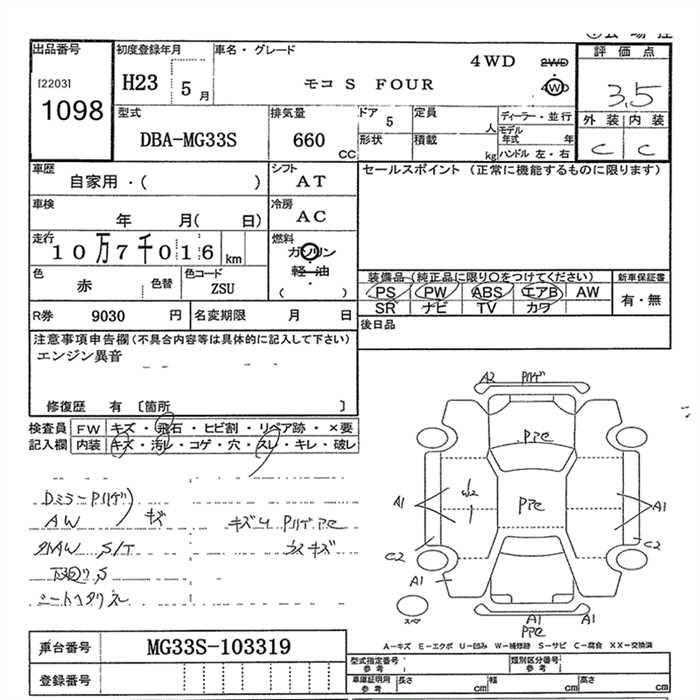 出品番号
[2203]
1098
初度登録年月
H23 5月
車名・グレード
モコ S FOUR
4WD
2WD
4WD
評価点
3.5
外装 内装
C C
型式
DBA-MG33S
排気量
660 CC
ドア 5
形状
定員 人
積載 kg
ディーラー・並行
モデル年式 年
ハンドル 左・右
車歴
自家用・( )
シフト
AT
セールスポイント (正常に機能するものに限ります)
車検
年 月( 日)
冷房
AC
走行
10万7千016 km
燃料
ガソリン
軽・油
( )
色
赤 色替
色コード
ZSU
装備品 (純正品に限り〇をつけてください)
PS PW ABS エアB AW
SR ナビ TV カワ
新車保証書
有・無
R券 9030 円
名変期限 月 日
後日品
注意事項申告欄(不具合内容等は具体的に記入して下さい)
エンジン異音
修復歴 有 [箇所 ]
検査員 FW キズ・飛石・ヒビ割・リペア跡・×要
記入欄 内装 キズ・汚レ・コゲ・穴・スレ・キレ・破レ
Dミラー
AW
キズ
S/T
A2
A1
W2
A1
C2
C2
A1
A1
A1
スペア
A-キズ E-エクボ U-凹み W-補修跡 S-サビ C-腐食 XX-交換済
車台番号 MG33S-103319
登録番号
型式指定番号 参考
類別区分番号 参考
車庫証明用 参考
長さ cm
幅 cm
高さ cm